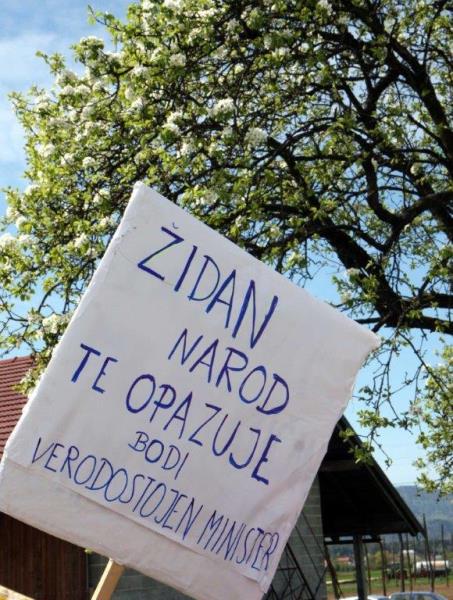 ŽIDAN
NAROD
TE OPAZUJE
BODI
VERODOSTOJEN MINISTER